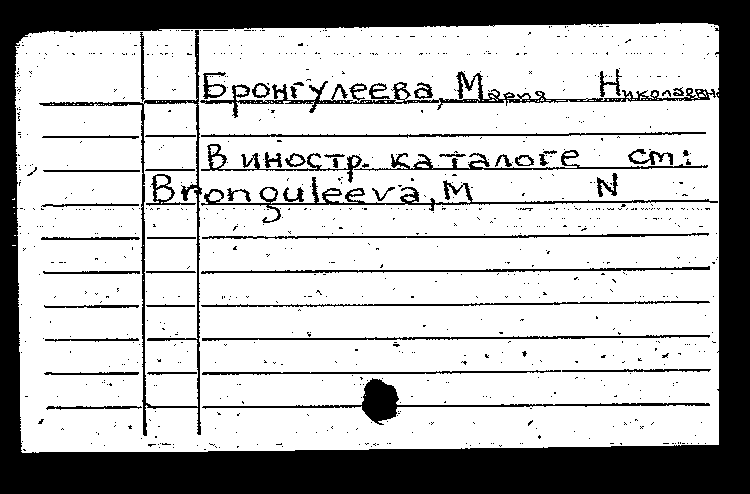 Бронгулеева, Мария Николаевна
В иностр. каталоге см:
Bronguleeva, M N